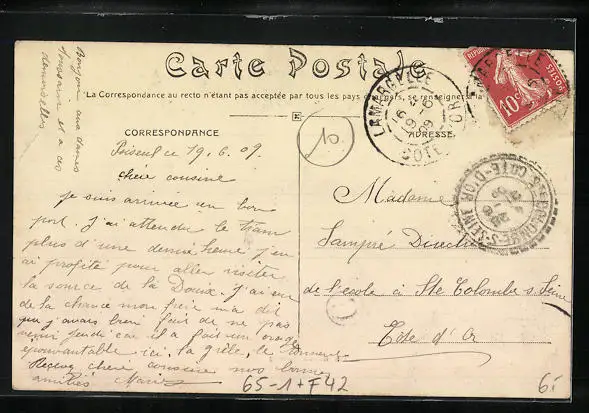 Bonjour aux dames
Toussaint et a ces
demoiselles
Carte Postale
La Correspondance au recto n'étant pas acceptée par tous les pays se renseigner à la
CORRESPONDANCE
ADRESSE
10
Poiseul ce 19.6.09.
chère cousine
je suis arrivée en bon
port. J'ai attendu le tram
plus d'une demie heure j'en
ai profité pour aller visiter
la source de la Doux. J'ai eu
de la chance mon frère m'a dit
que j'avais bien fait de ne pas
venir jeudi car il a fait un orage
épouvantable ici, la grêle, le tonnerre
Recevez chère cousine nos bonnes
amitiés Marie
Madame
Sampré Direct
de l'école à Ste Colombe s. Seine
Côte d'Or
LAMARGELLE
19 -6 09
COTE D'OR
10c
POSTES
COTE-D'OR
65-1+F42
65